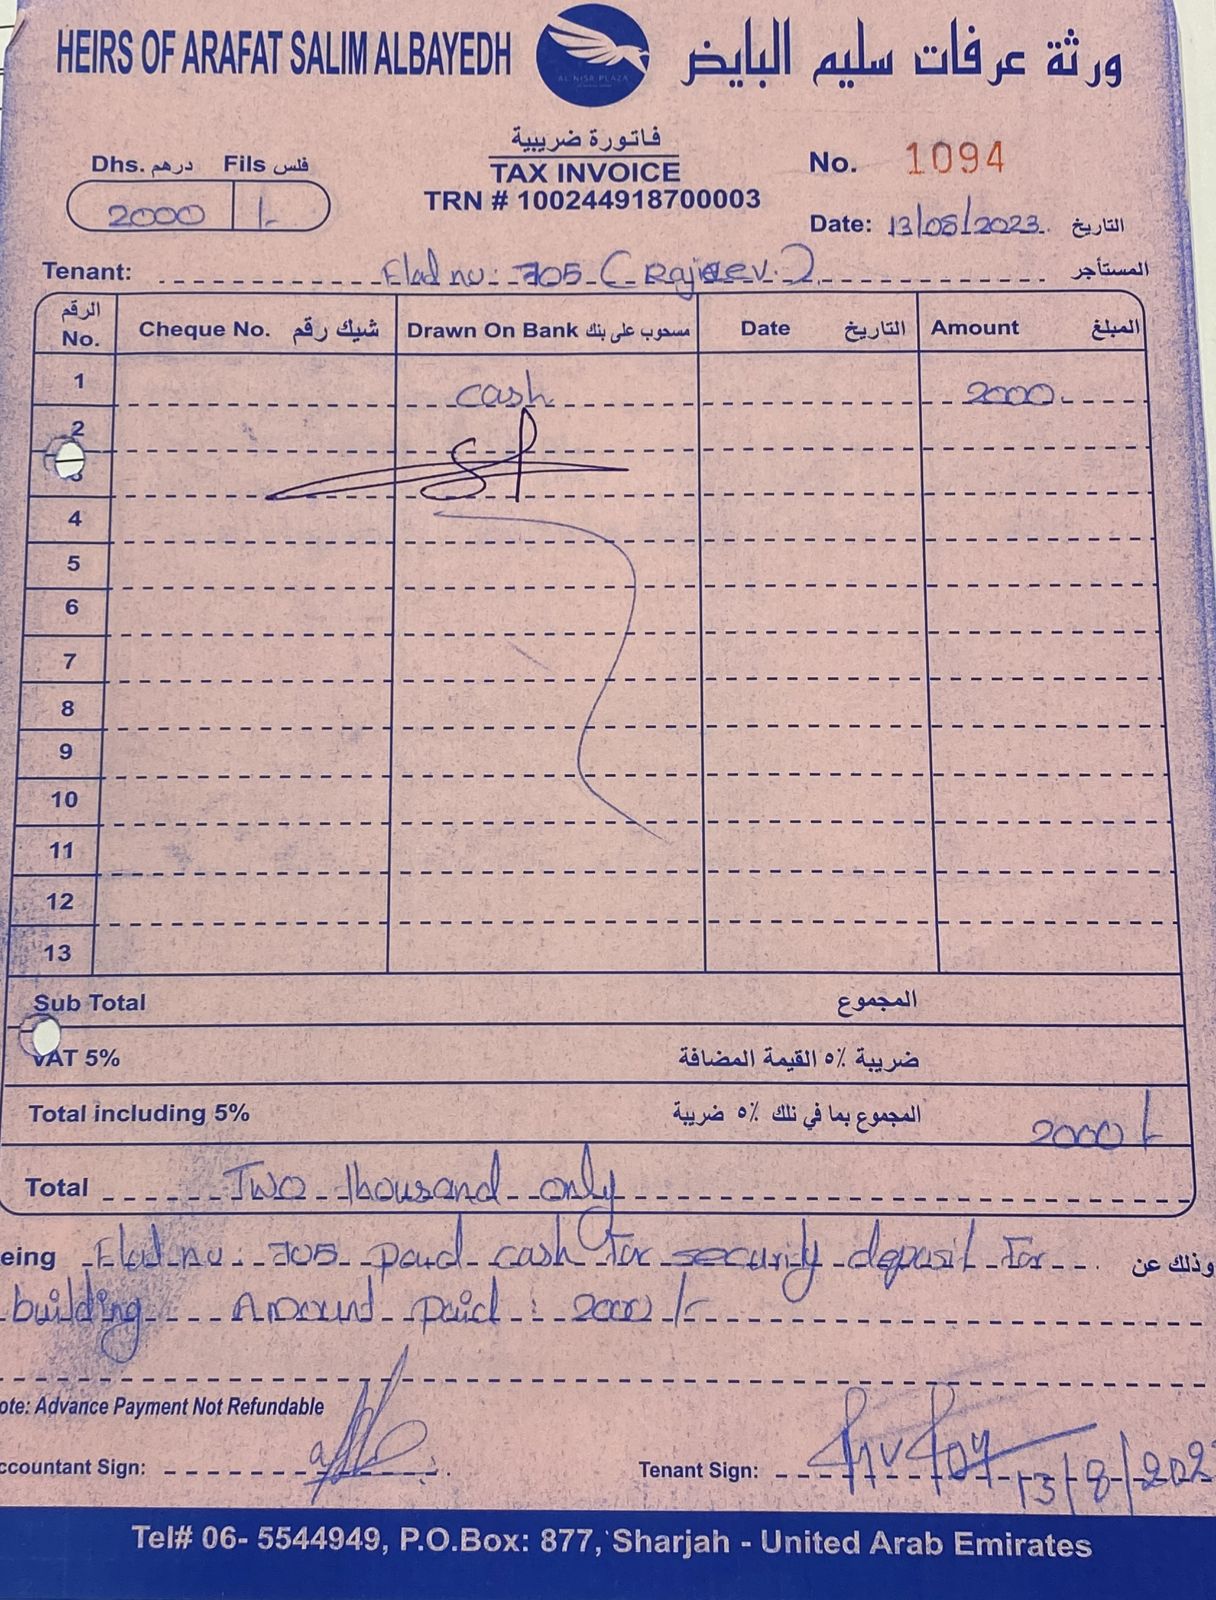 HEIRS OF ARAFAT SALIM ALBAYEDH
AL NISR PLAZA
ورثة عرفات سليم البايض
فاتورة ضريبية
TAX INVOICE
TRN # 100244918700003
Dhs. درهم Fils فلس
2000 /-
No. 1094
Date: 13/08/2023 التاريخ
Tenant: Flat no: 705 (Rajeev.) المستأجر
الرقم No. Cheque No. شيك رقم Drawn On Bank مسحوب على بنك Date التاريخ Amount المبلغ
1 cash 2000
2
3
4
5
6
7
8
9
10
11
12
13
Sub Total المجموع
VAT 5% ضريبة ٥٪ القيمة المضافة
Total including 5% المجموع بما في نلك ٥٪ ضريبة 2000/-
Total Two thousand only
eing Flat no: 705 paid cash for security deposit for وذلك عن
building Amount paid: 2000/-
ote: Advance Payment Not Refundable
ccountant Sign:
Tenant Sign: 13/8/202
Tel# 06- 5544949, P.O.Box: 877, Sharjah - United Arab Emirates